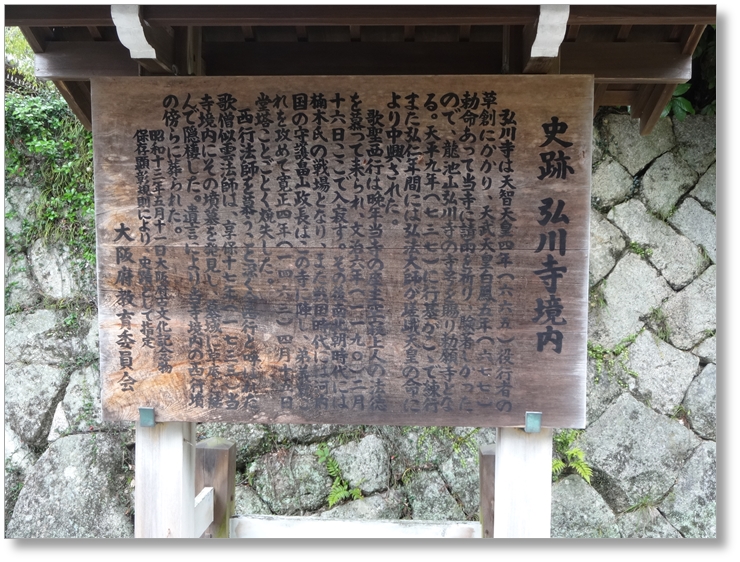 史跡 弘川寺境内
弘川寺は天智天皇四年(六六五)役行者の
草創にかかり、天武天皇白鳳五年(六七七)
勅命あって当寺に請雨を祈り、験著しかった
ので、龍池山弘川寺の寺号を賜り勅願寺とな
る。天平九年(七三七)に行基がここで練行
また弘仁年間には弘法大師が嵯峨天皇の命に
より中興された。
歌聖西行は晩年当寺の座主空寂上人の法徳
を慕って来られ、文治六年(一一九〇)二月
十六日ここで入寂す。その後南北朝時代には
楠木氏の戦場となり、また戦国時代には河内
国の守護畠山政長はこの寺に陣し、弟義就こ
れを攻めて寛正四年(一四六三)四月十五日
堂塔ことごとく焼失した。
西行法師を慕うこと深く今西行と呼ばれた
歌僧似雲法師は、享保十七年(一七三二)当
寺境内にその墳墓を発見し、墓域に草庵を結
んで隠棲した。遺言により当寺境内の西行墳
の傍らに葬られた。
昭和十三年五月十一日大阪府文化記念物
保存顕彰規則により 史跡として指定
大阪府教育委員会